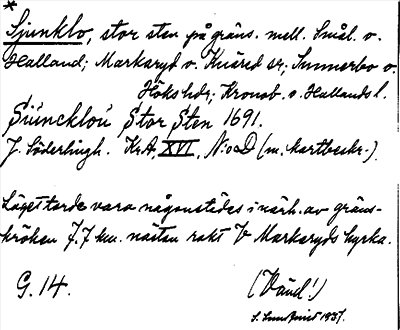 *
Sjunklo, stor sten på gräns. mell. Smål. o.
Halland; Markaryd o. Knäred sr; Sunnerbo o.
Höks hdr; Kronob. o. Hallands l.
Siüncklou Stor Sten 1691.
J. Söderlingh. Kr.A. XVI, N:o D (m. kartbeskr.)
Läget torde vara någonstädes i närh. av gräns-
kröken 7.7 km. nästan rakt V Markaryds kyrka.
G. 14.
(Vänd!)
1937.